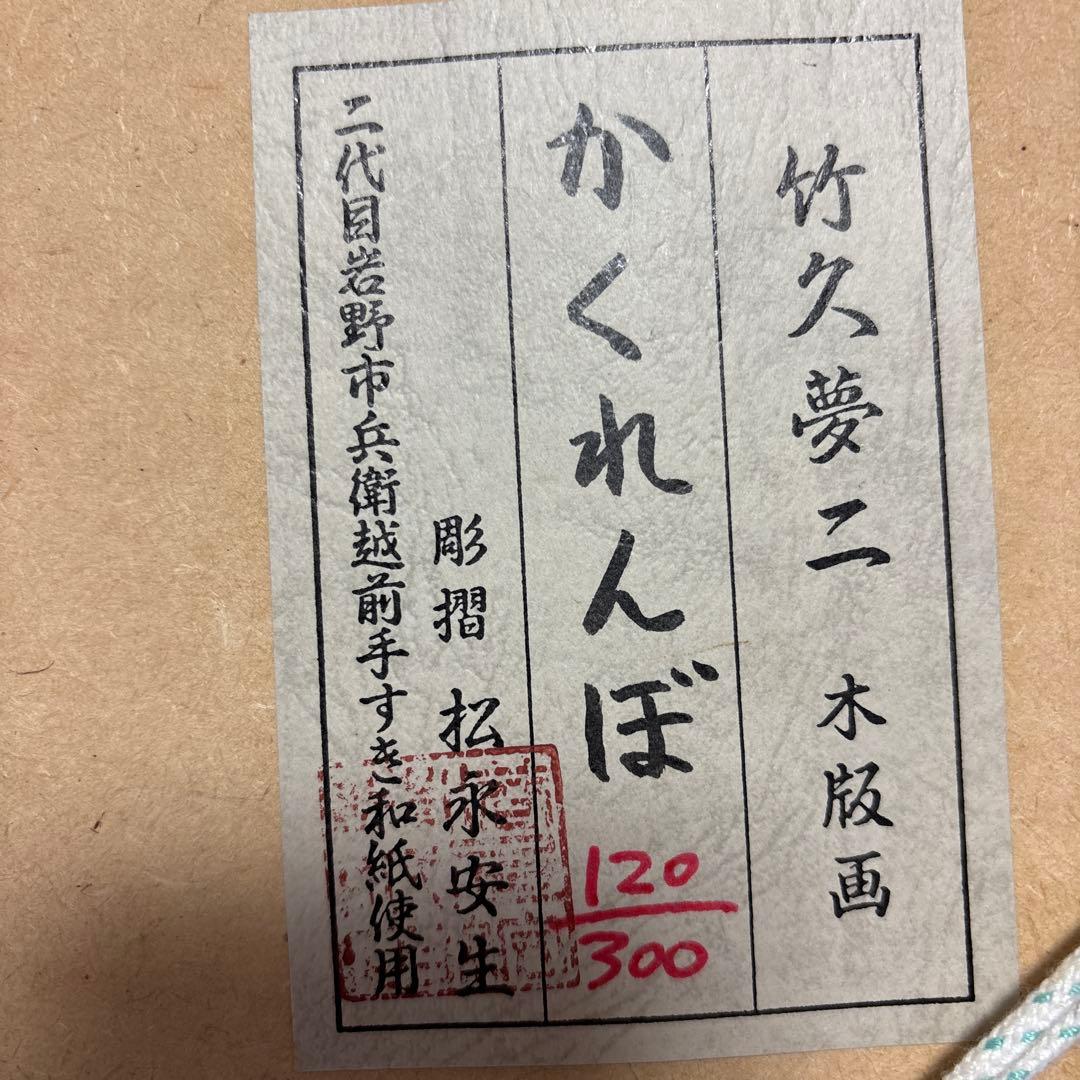 竹久夢二 木版画
かくれんぼ
120
300
彫摺 松永安生
二代目岩野市兵衛越前手すき和紙使用